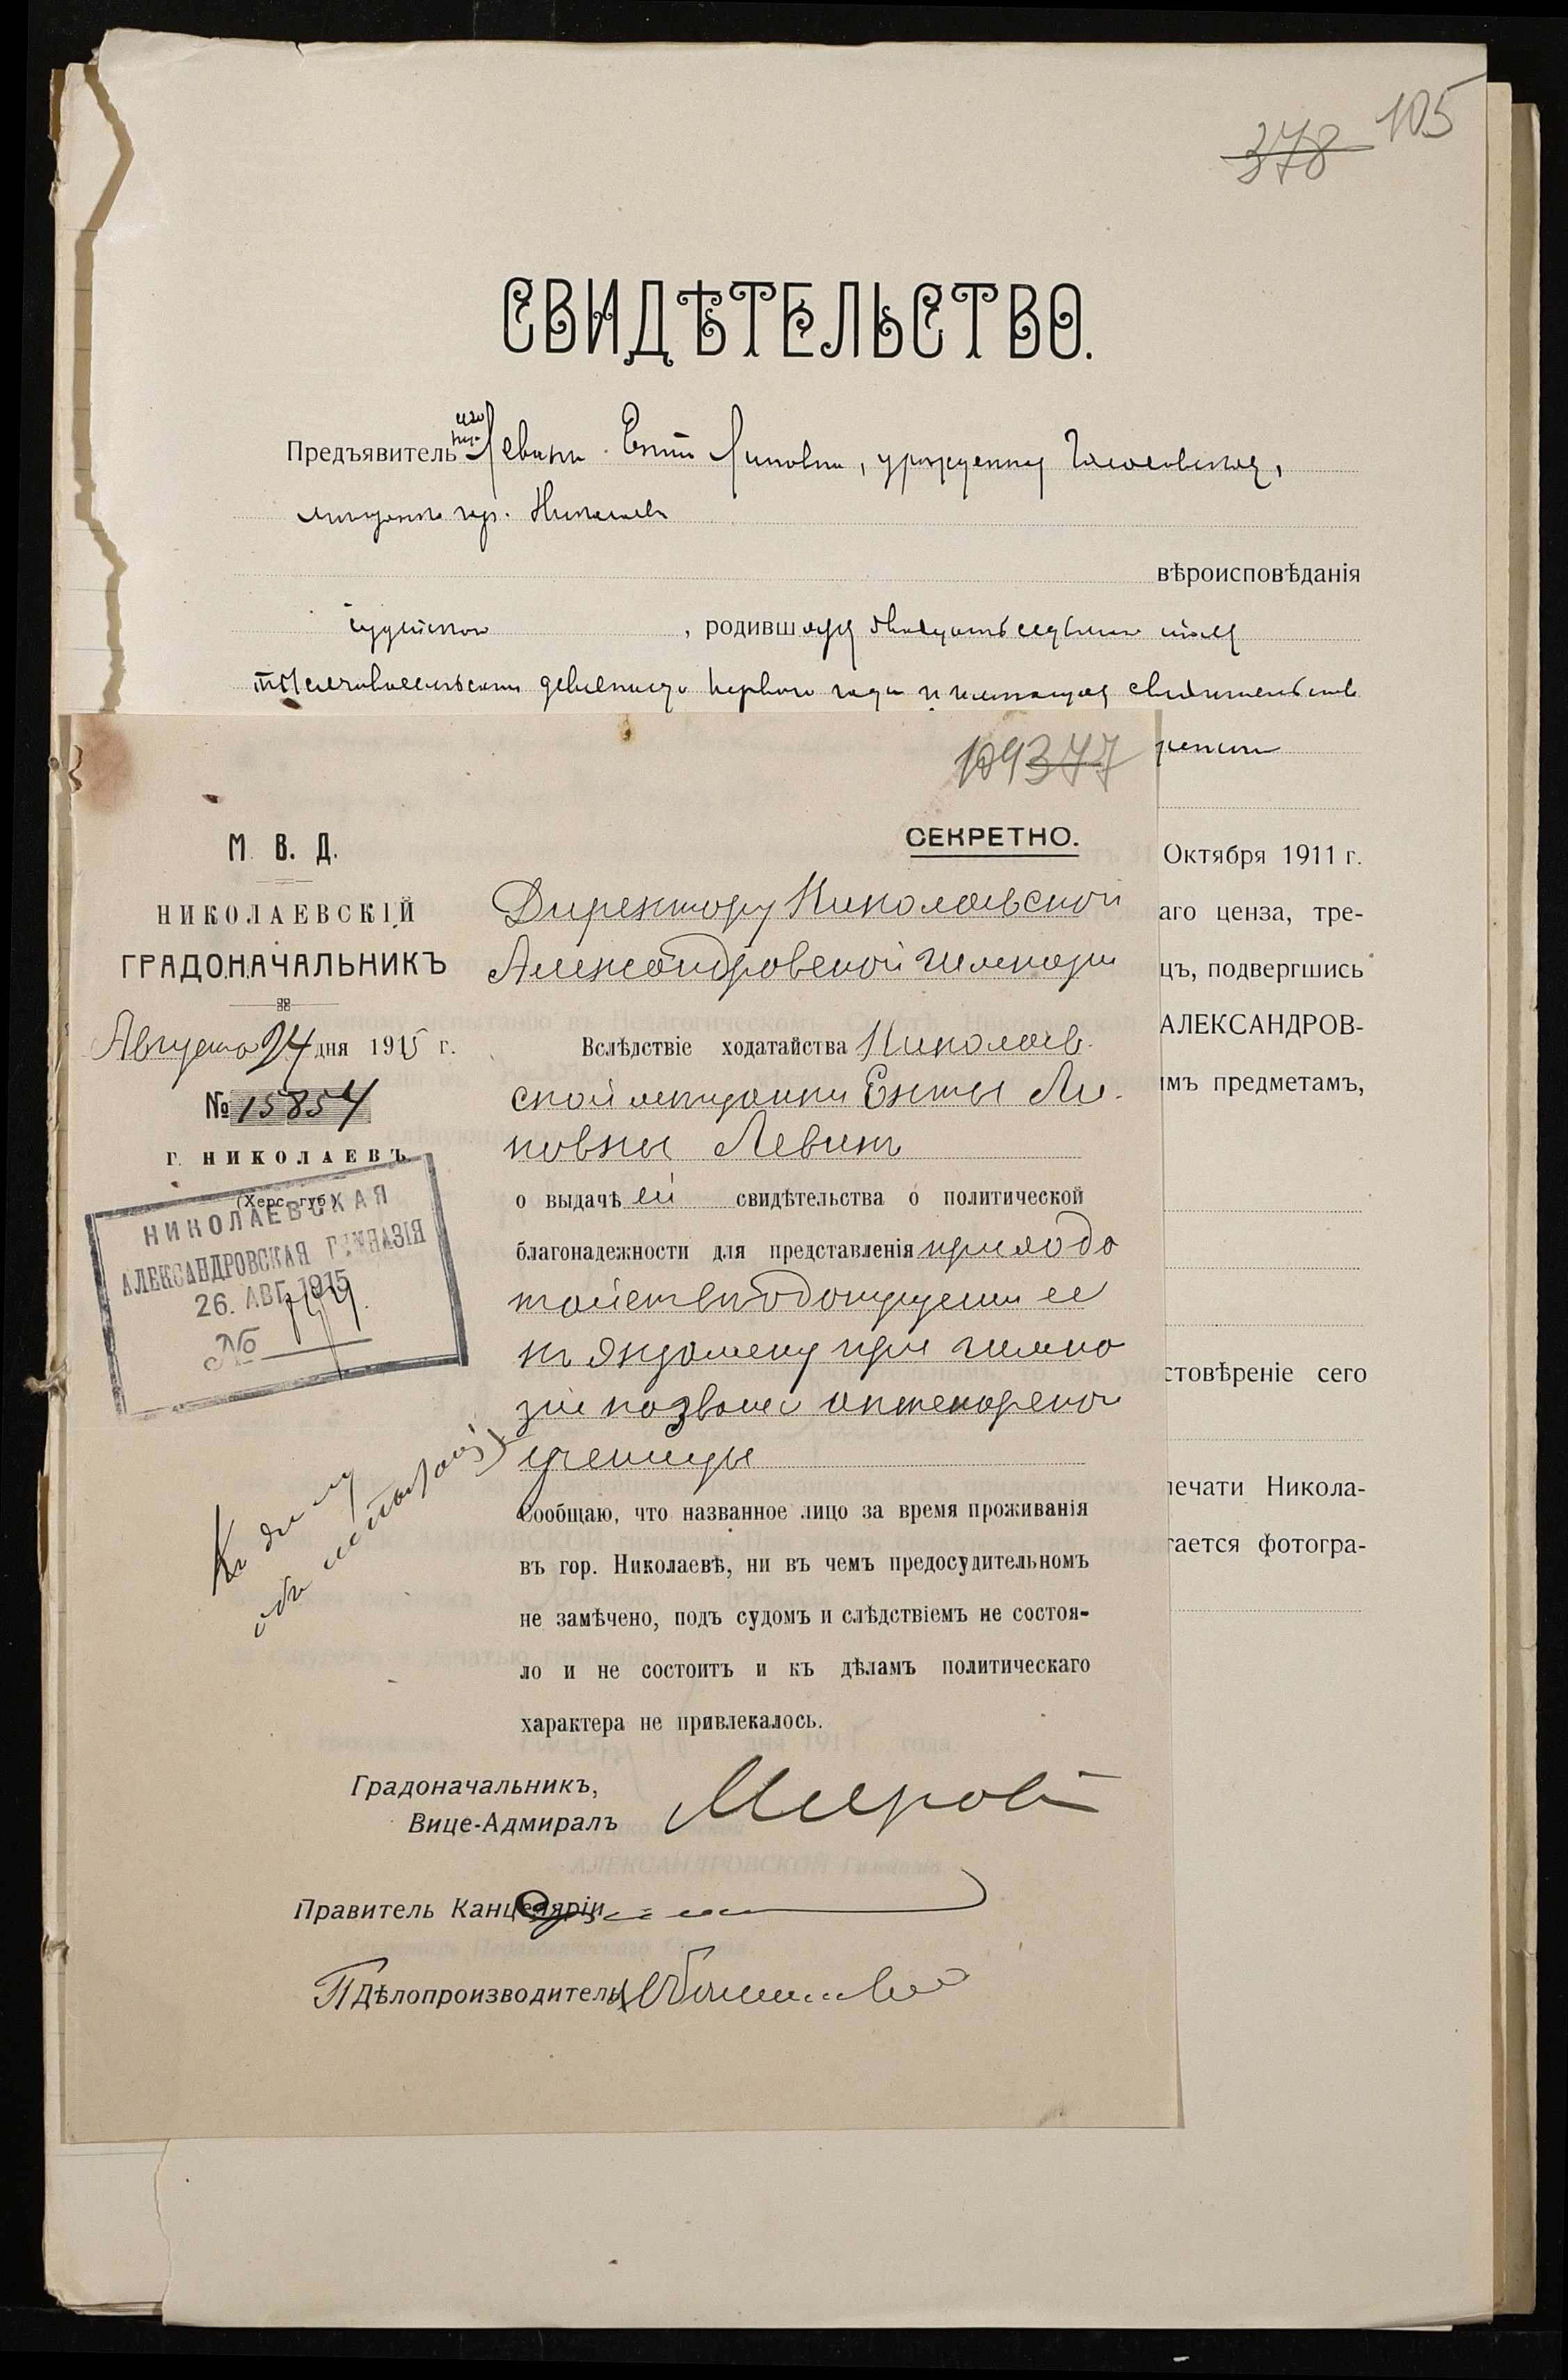 105
378
СВИДѢТЕЛЬСТВО.
Предъявительница сего Левина Ента Липовна, урожденная
мѣщанка гор. Николаева
вѣроисповѣданія
іудейскаго, родившаяся двадцать седьмого мая
тысяча восемьсотъ девяносто перваго года и имеющая свидетельство
Октября 1911 г.
аго ценза, тре-
цъ, подвергшись
АЛЕКСАНДРОВ-
имъ предметамъ,
стовѣреніе сего
печати Никола-
гается фотогра-
109 377
СЕКРЕТНО.
М. В. Д.
НИКОЛАЕВСКІЙ
ГРАДОНАЧАЛЬНИКЪ
Августа 24 дня 1915 г.
№ 15854
Г. НИКОЛАЕВЪ
(Херс. губ.)
НИКОЛАЕВСКАЯ
АЛЕКСАНДРОВСКАЯ ГИМНАЗІЯ
26. АВГ. 1915
№
Директору Николаевской
Александровской гимназіи
Вслѣдствіе ходатайства Николаев-
ской мещанки Енты Ли-
повны Левинъ
о выдачѣ ей свидѣтельства о политической
благонадежности для представленія при хода
тайстве о допущеніи ее
къ экзамену при гимна
зіи на званіе аптекарской
ученицы
Сообщаю, что названное лицо за время проживанія
въ гор. Николаевѣ, ни въ чемъ предосудительномъ
не замѣчено, подъ судомъ и слѣдствіемъ не состоя-
ло и не состоитъ и къ дѣламъ политическаго
характера не привлекалось.
Къ делу
объ испытаніях
Градоначальникъ,
Вице-Адмиралъ
Правитель Канцеляріи
П Дѣлопроизводитель